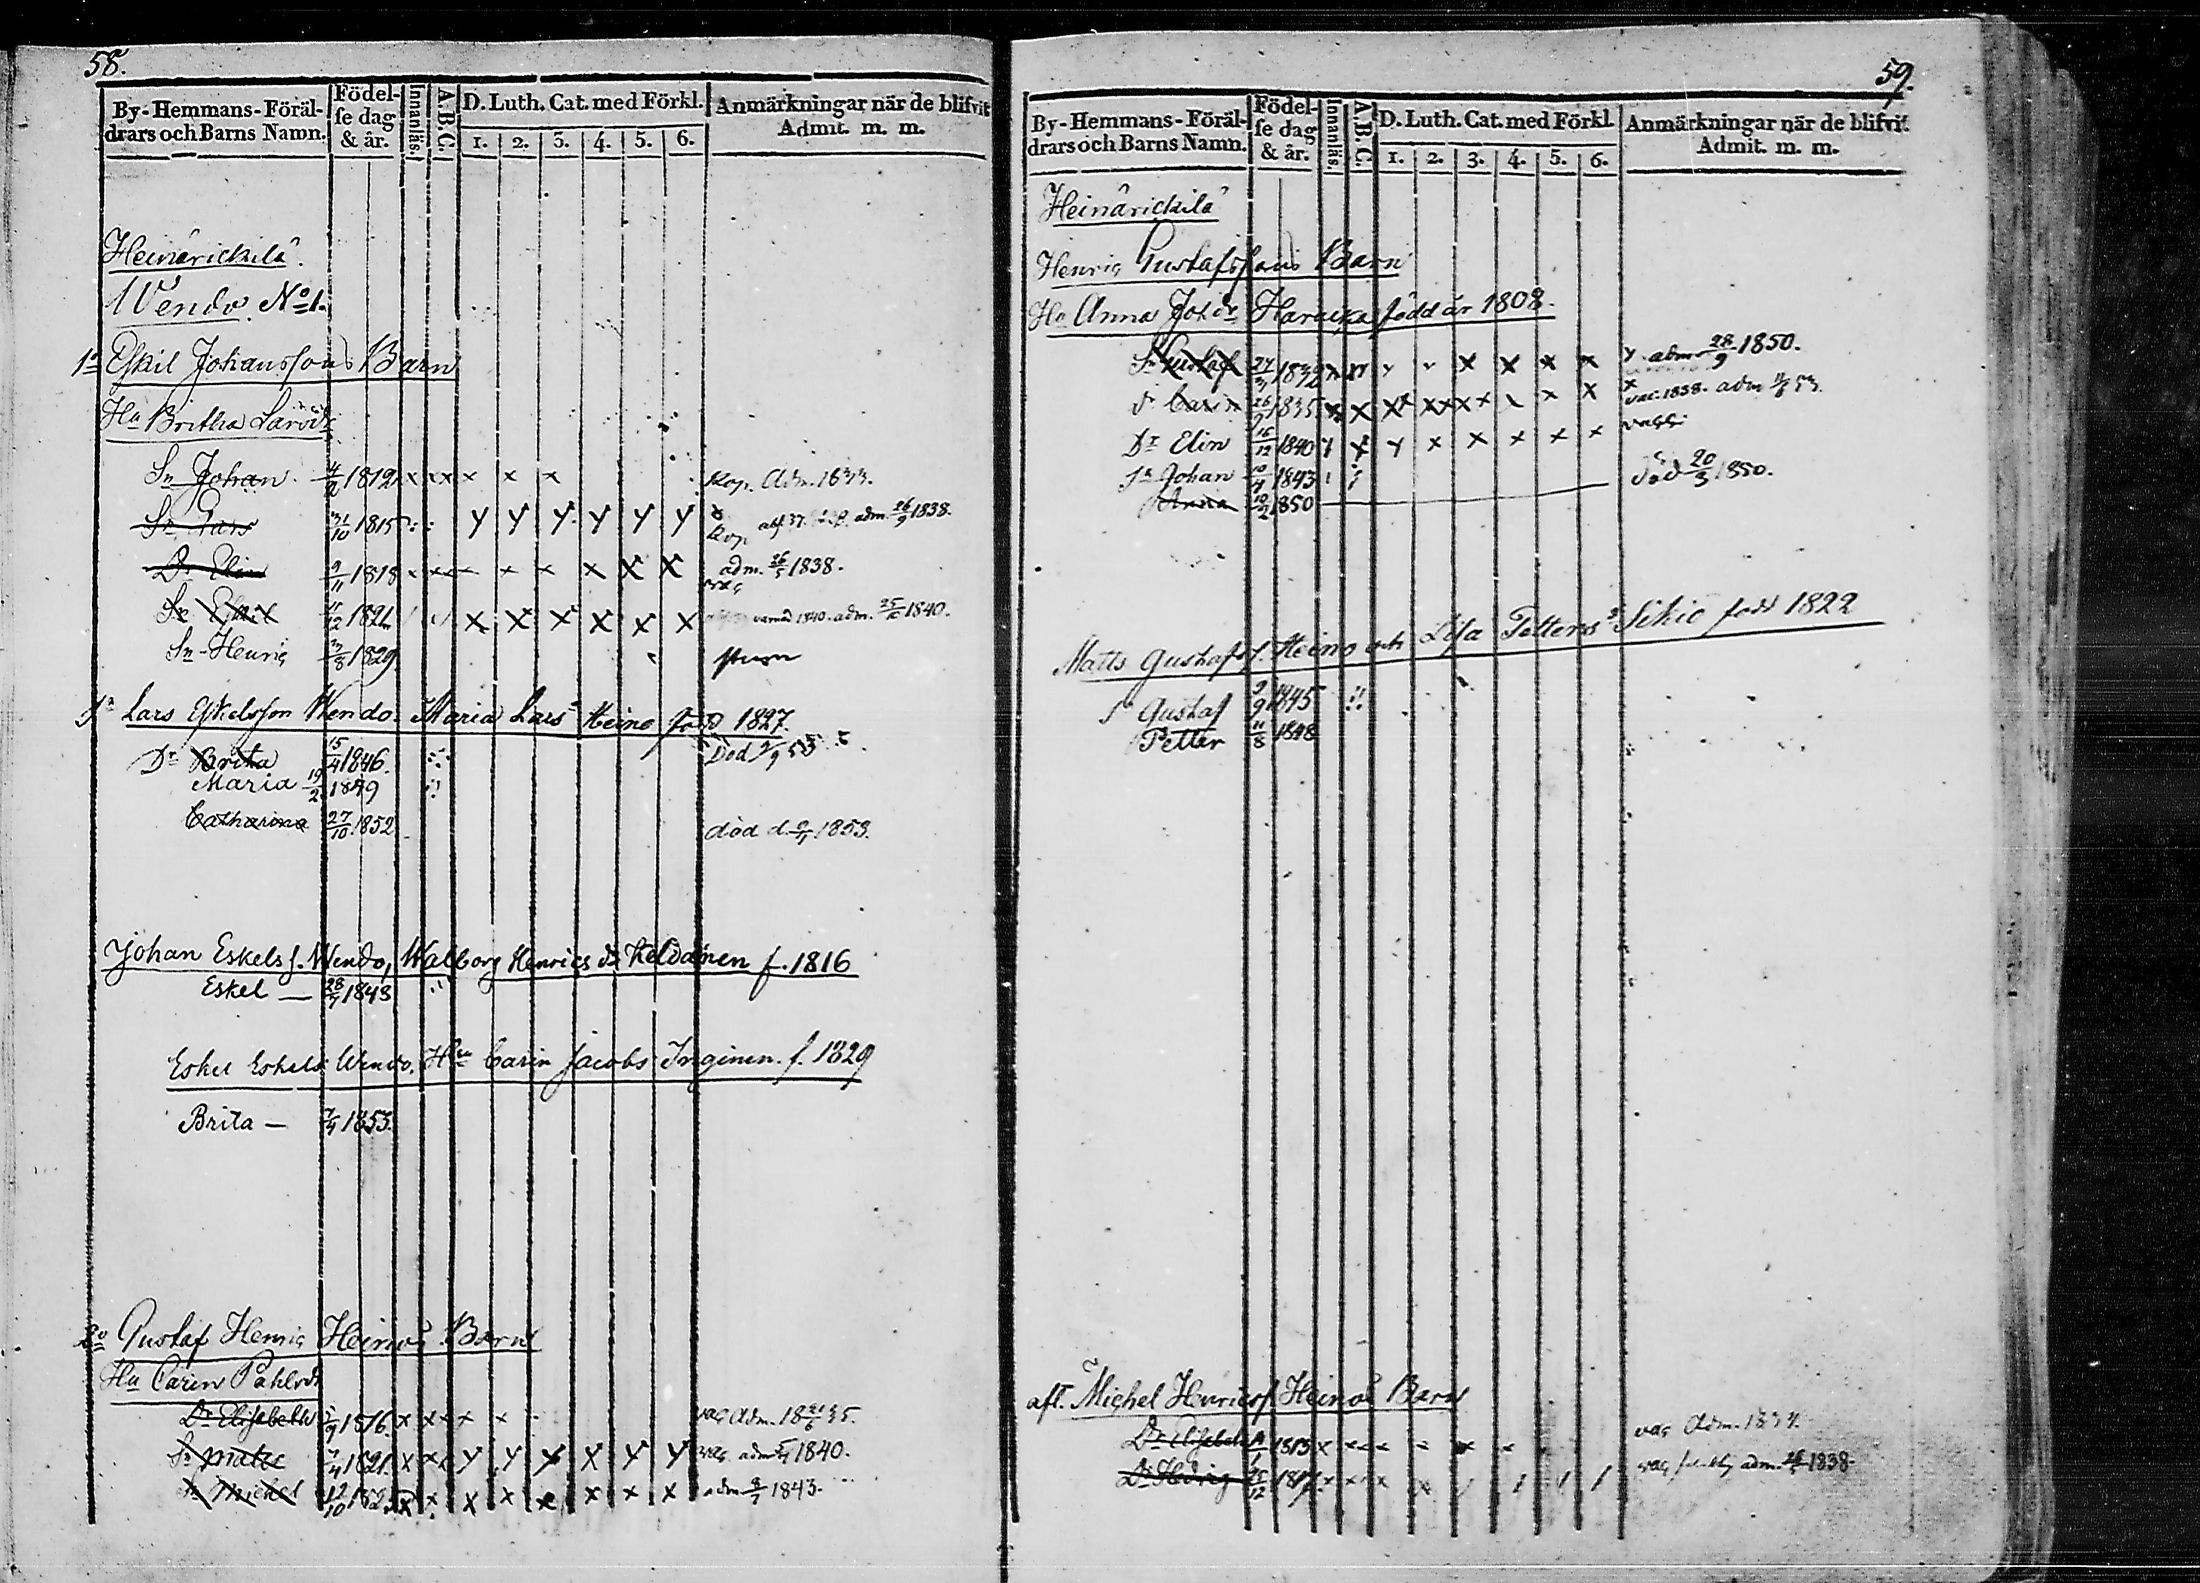 58.
By-Hemmans-Föräl-
drars och Barns Namn.
Födel-
se dag
& år.
Innanläs.
A.B.C.
D. Luth. Cat. med Förkl.
1. 2. 3. 4. 5. 6.
Anmärkningar när de blifvit
Admit. m. m.
Heinärickilä.
Wendo No 1.
1o Eskil Johanssons Barn
Hu Britha Larsdr
Sn Johan 4/2 1812 x xx x x x kop. Adm. 1833.
Sn Lars 31/10 1815 y y y y y y adm. 26/9 1838.
Dr Elin 9/11 1818 x x x x x x adm. 26/5 1838.
Sn Eskil 11/12 1821 x x x x x x 1840. adm. 25/10 1840.
Sn Henric 3/8 1829
Sn Lars Eskelsson Wendo. Maria Lars Heino född 1827.
Dr Brita 15/4 1846. Död 2/9 53
Maria 19/2 1849
Catharina 27/10 1852 död d. 1853.
Johan Eskels s. Wendo, Walborg Henrics dr Keldanen f. 1816
Eskel — 28/7 1843
Eskel Eskels Wendo. Hu Carin Jacobs Inginen. f. 1829
Brita — 7/4 1853.
2o Gustaf Henric Heinos Barn
Hu Carin Påhlsdr
Dr Elisabeth 5/9 1816 x x x x x vac Adm. 1835.
Sn Matts 7/4 1821. x x y y y x y y vac. adm 1840.
Sn Michel 12/10 x x x x x x x x adm 1843.
59.
By-Hemmans-Föräl-
drars och Barns Namn.
Födel-
se dag
& år.
Innanläs.
A.B.C.
D. Luth. Cat. med Förkl.
1. 2. 3. 4. 5. 6.
Anmärkningar när de blifvit
Admit. m. m.
Heinärickilä
Henric Gustafssons Barn
Hu Anna Joh. dr Haraika född år 1808.
Sn Gustaf 24/3 1832 x x x x adm 28/9 1850.
dr Carin 1835 x x x x x x vac. 1838. adm 53.
Dr Elin 16/12 1840 x x x x x x vacc
Sn Johan 10/4 1843
Anna 10/2 1850 död 20/3 1850.
Matts Gustafs s. Heino och Lisa Petters Sihio född 1822
Sn Gustaf 9/9 1845
Petter 11/8 1848
afl. Michel Henrics s Heinos Barn
Dr Elisabeth 1813 x x x x vac Adm. 1834.
Dr Hedvig 25/12 x x x x vac adm. 1838.